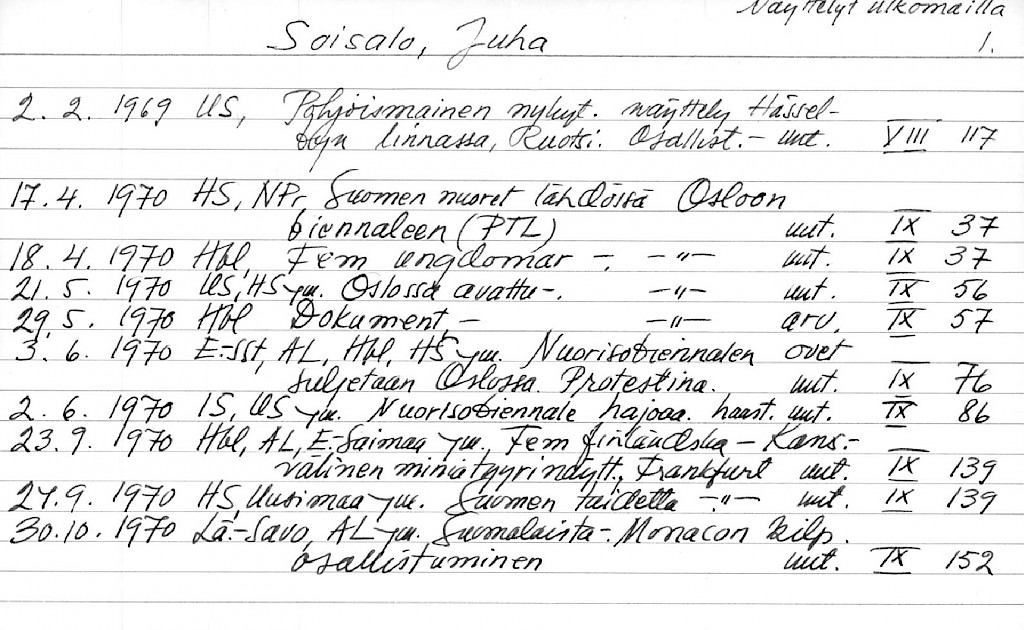 Näyttelyt ulkomailla
Soisalo, Juha 1.
2. 2. 1969 US, Pohjoismainen nykyt. näyttely Hässel-
byn linnassa, Ruotsi. Osallist. - uut. VIII 117
17. 4. 1970 HS, NPr Suomen nuoret lähdössä Osloon
biennaleen (PTL) uut. IX 37
18. 4. 1970 Hbl, Fem ungdomar - . -"- uut. IX 37
21. 5. 1970 US, HS ym. Oslossa avattu - . -"- uut. IX 56
29. 5. 1970 Hbl Dokument, - -"- arv. IX 57
3. 6. 1970 E:-SSt, AL, Hbl, HS ym. Nuorisobiennalen ovet
suljetaan Oslossa. Protestina. uut. IX 76
2. 6. 1970 IS, US ym. Nuorisobiennale hajoaa. haast. uut. IX 86
23. 9. 1970 Hbl, AL, E:-Saimaa ym. Fem finländska - Kans.-
välinen miniatyyrinäytt., Frankfurt uut. IX 139
27. 9. 1970 HS, Uusimaa ym. Suomen taidetta -"- uut. IX 139
30. 10. 1970 Lä:-Savo, AL ym. Suomalaista - . Monacon kilp.
osallistuminen uut. IX 152